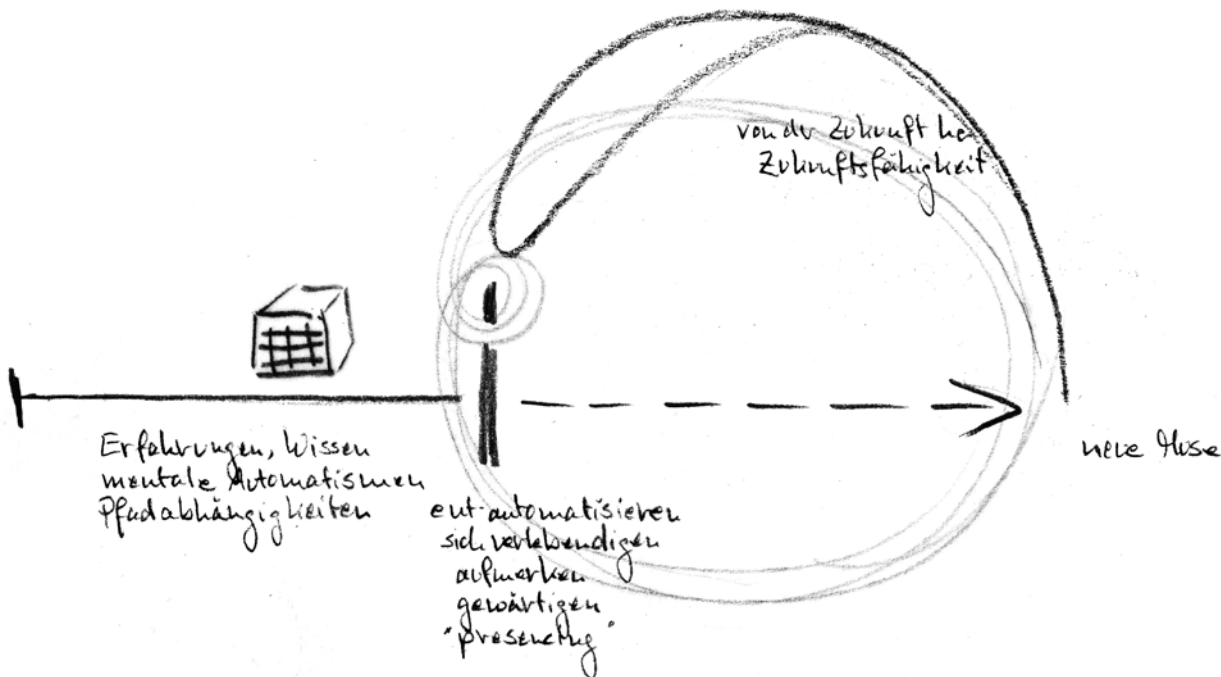 von der Zukunft her
Zukunftsfähigkeit
Erfahrungen, Wissen
mentale Automatismen
Pfadabhängigkeiten
neue
ent-automatisieren
sich verlebendigen
aufmerken
gewärtigen
"presencing"